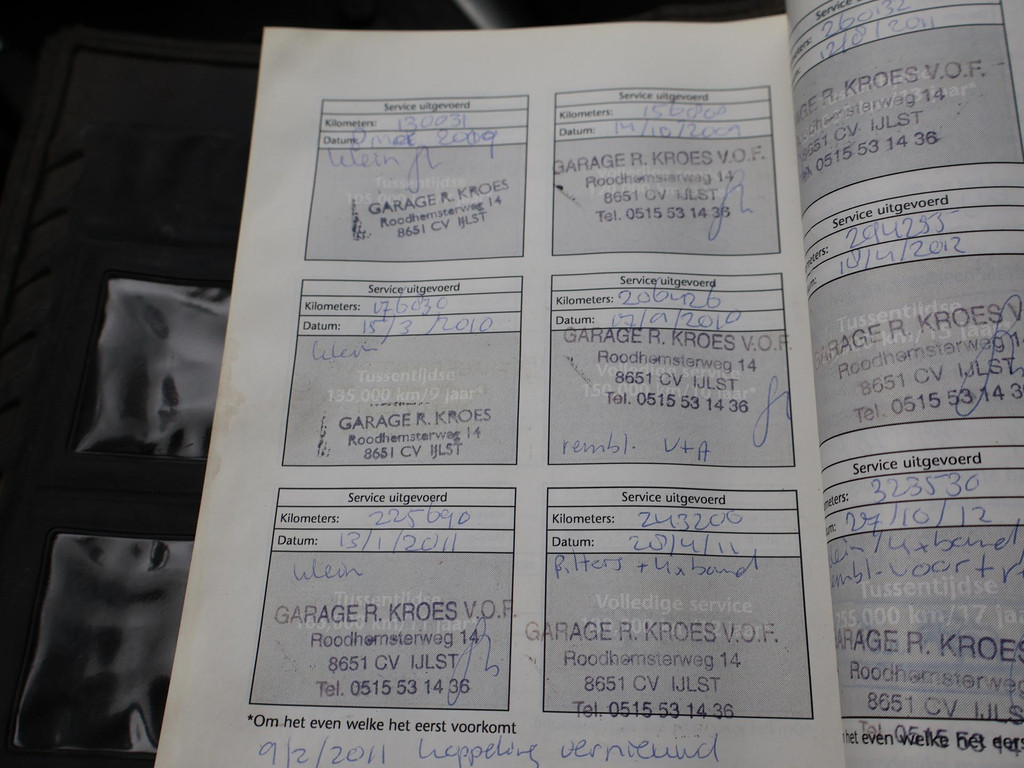 Service uitgevoerd
Kilometers: 130031
Datum: mei 2009
klein
GARAGE R. KROES
Roodhemsterweg 14
8651 CV IJLST
Service uitgevoerd
Kilometers:
Datum: 14/10/2009
GARAGE R. KROES V.O.F.
Roodhemsterweg 14
8651 CV IJLST
Tel. 0515 53 14 36
Service uitgevoerd
Kilometers: 176030
Datum: 15/3/2010
klein
Tussentijdse
135.000 km/9 jaar*
GARAGE R. KROES
Roodhemsterweg 14
8651 CV IJLST
Service uitgevoerd
Kilometers: 206426
Datum: 2010
GARAGE R. KROES V.O.F.
Roodhemsterweg 14
8651 CV IJLST
Tel. 0515 53 14 36
rembl. V+A
Service uitgevoerd
Kilometers: 225690
Datum: 13/1/2011
klein
GARAGE R. KROES V.O.F.
Roodhemsterweg 14
8651 CV IJLST
Tel. 0515 53 14 36
Service uitgevoerd
Kilometers: 243200
Datum: 20/4/11
filters + 4xband
Volledige service
GARAGE R. KROES V.O.F.
Roodhemsterweg 14
8651 CV IJLST
Tel. 0515 53 14 36
*Om het even welke het eerst voorkomt
9/2/2011 koppeling vernieuwd
Service
260132
12/8/2011
GE R. KROES V.O.F.
hemsterweg 14
8651 CV IJLST
Tel. 0515 53 14 36
Service uitgevoerd
eters: 294255
10/4/2012
Tussentijdse
GARAGE R. KROES V
Roodhemsterweg 14
8651 CV IJLST
Tel. 0515 53 14 36
Service uitgevoerd
eters: 323530
um: 27/10/12
lein/4xband
embl. voor +
Tussentijdse
255.000 km/17 jaa
ARAGE R. KROES
Roodhemsterweg
8651 CV IJLS
Tel. 0515 53 14
het even welke het eers